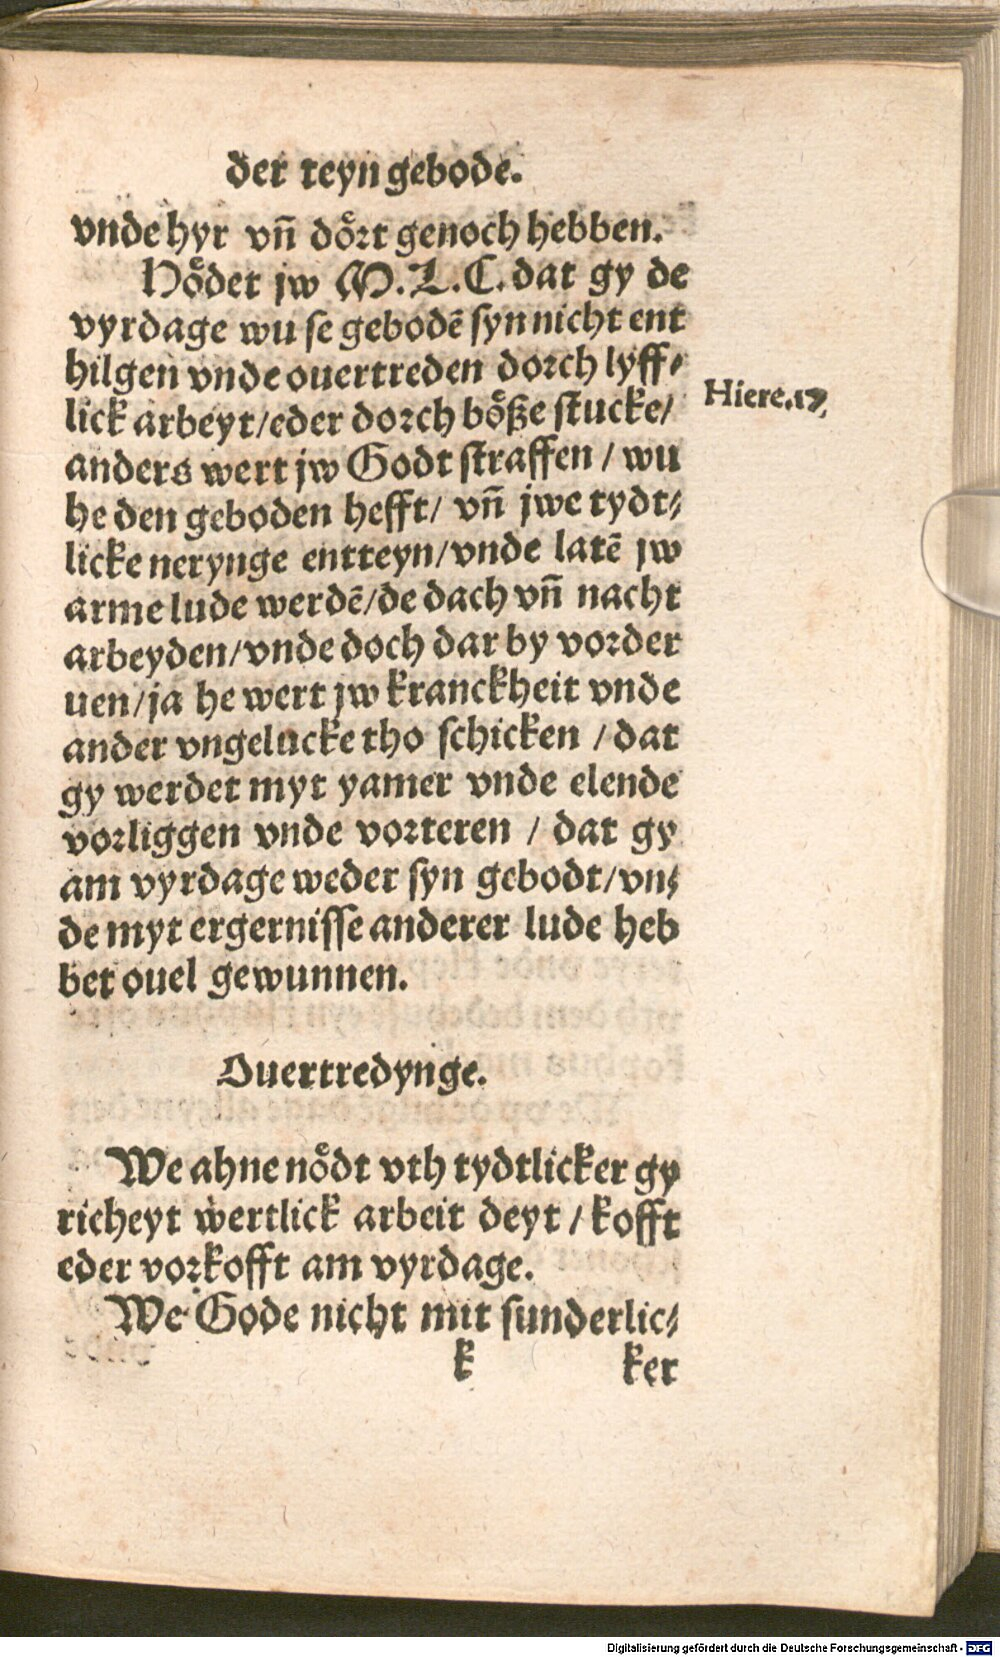 der teyn gebode.
vnde hyr vn̄ doͤrt genoch hebben.
Hoͤdet jw M.L.C. dat gy de
vyrdage wu se gebodē syn nicht ent
hilgen vnde ouertreden dorch lyff⸗
lick arbeyt/eder dorch boͤße stucke/
Hiere.17,
anders wert jw Godt straffen / wu
he den geboden hefft/ vn̄ jwe tydt⸗
licke nerynge entteyn/vnde latē jw
arme lude werdē/de dach vn̄ nacht
arbeyden/vnde doch dar by vorder
uen/ja he wert jw kranckheit vnde
ander vngelucke tho schicken / dat
gy werdet myt yamer vnde elende
vorliggen vnde vorteren / dat gy
am vyrdage weder syn gebodt/vn⸗
de myt ergernisse anderer lude heb
bet ouel gewunnen.
Ouertredynge.
We ahne noͤdt vth tydtlicker gy
richeyt wertlick arbeit deyt / kofft
eder vorkofft am vyrdage.
We Gode nicht mit sunderlic⸗
k ker
Digitalisierung gefördert durch die Deutsche Forschungsgemeinschaft - DFG